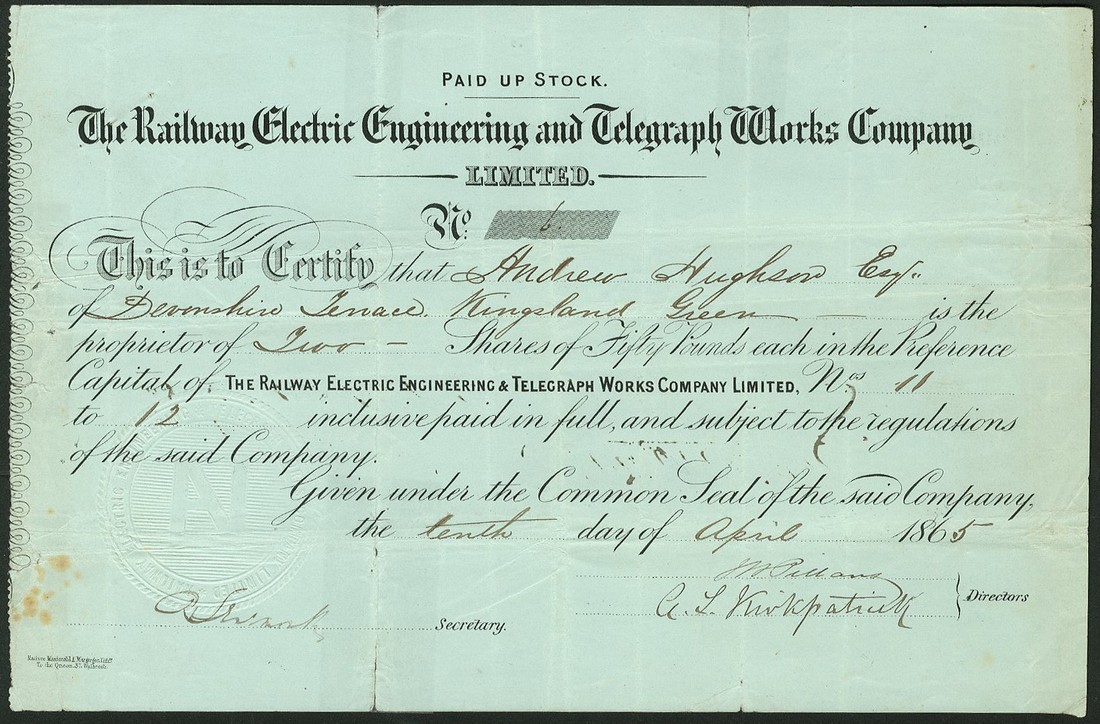 PAID UP STOCK.
The Railway Electric Engineering and Telegraph Works Company
LIMITED.
No. 6
This is to Certify that Andrew Hughson Esqr.
of Devonshire Terrace Kingsland Green — is the
proprietor of Two — Shares of Fifty Pounds each in the Preference
Capital of THE RAILWAY ELECTRIC ENGINEERING & TELEGRAPH WORKS COMPANY LIMITED, Nos 11
to 12 inclusive paid in full, and subject to the regulations
of the said Company.
Given under the Common Seal of the said Company,
the tenth day of April 1865
A. L. Kirkpatrick Directors
Secretary.
To the Queen, 37, Walbrook.